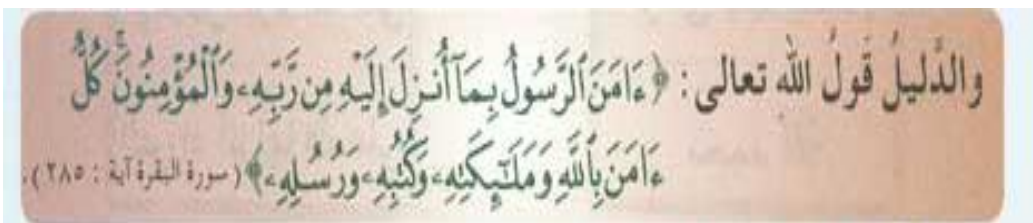 والدَّليلُ قَولُ الله تعالى: ﴿ءَامَنَ ٱلرَّسُولُ بِمَآ أُنزِلَ إِلَيْهِ مِن رَّبِّهِۦ وَٱلْمُؤْمِنُونَۚ كُلٌّ
ءَامَنَ بِٱللَّهِ وَمَلَٰٓئِكَتِهِۦ وَكُتُبِهِۦ وَرُسُلِهِۦ﴾ (سورة البقرة آية : ٢٨٥).